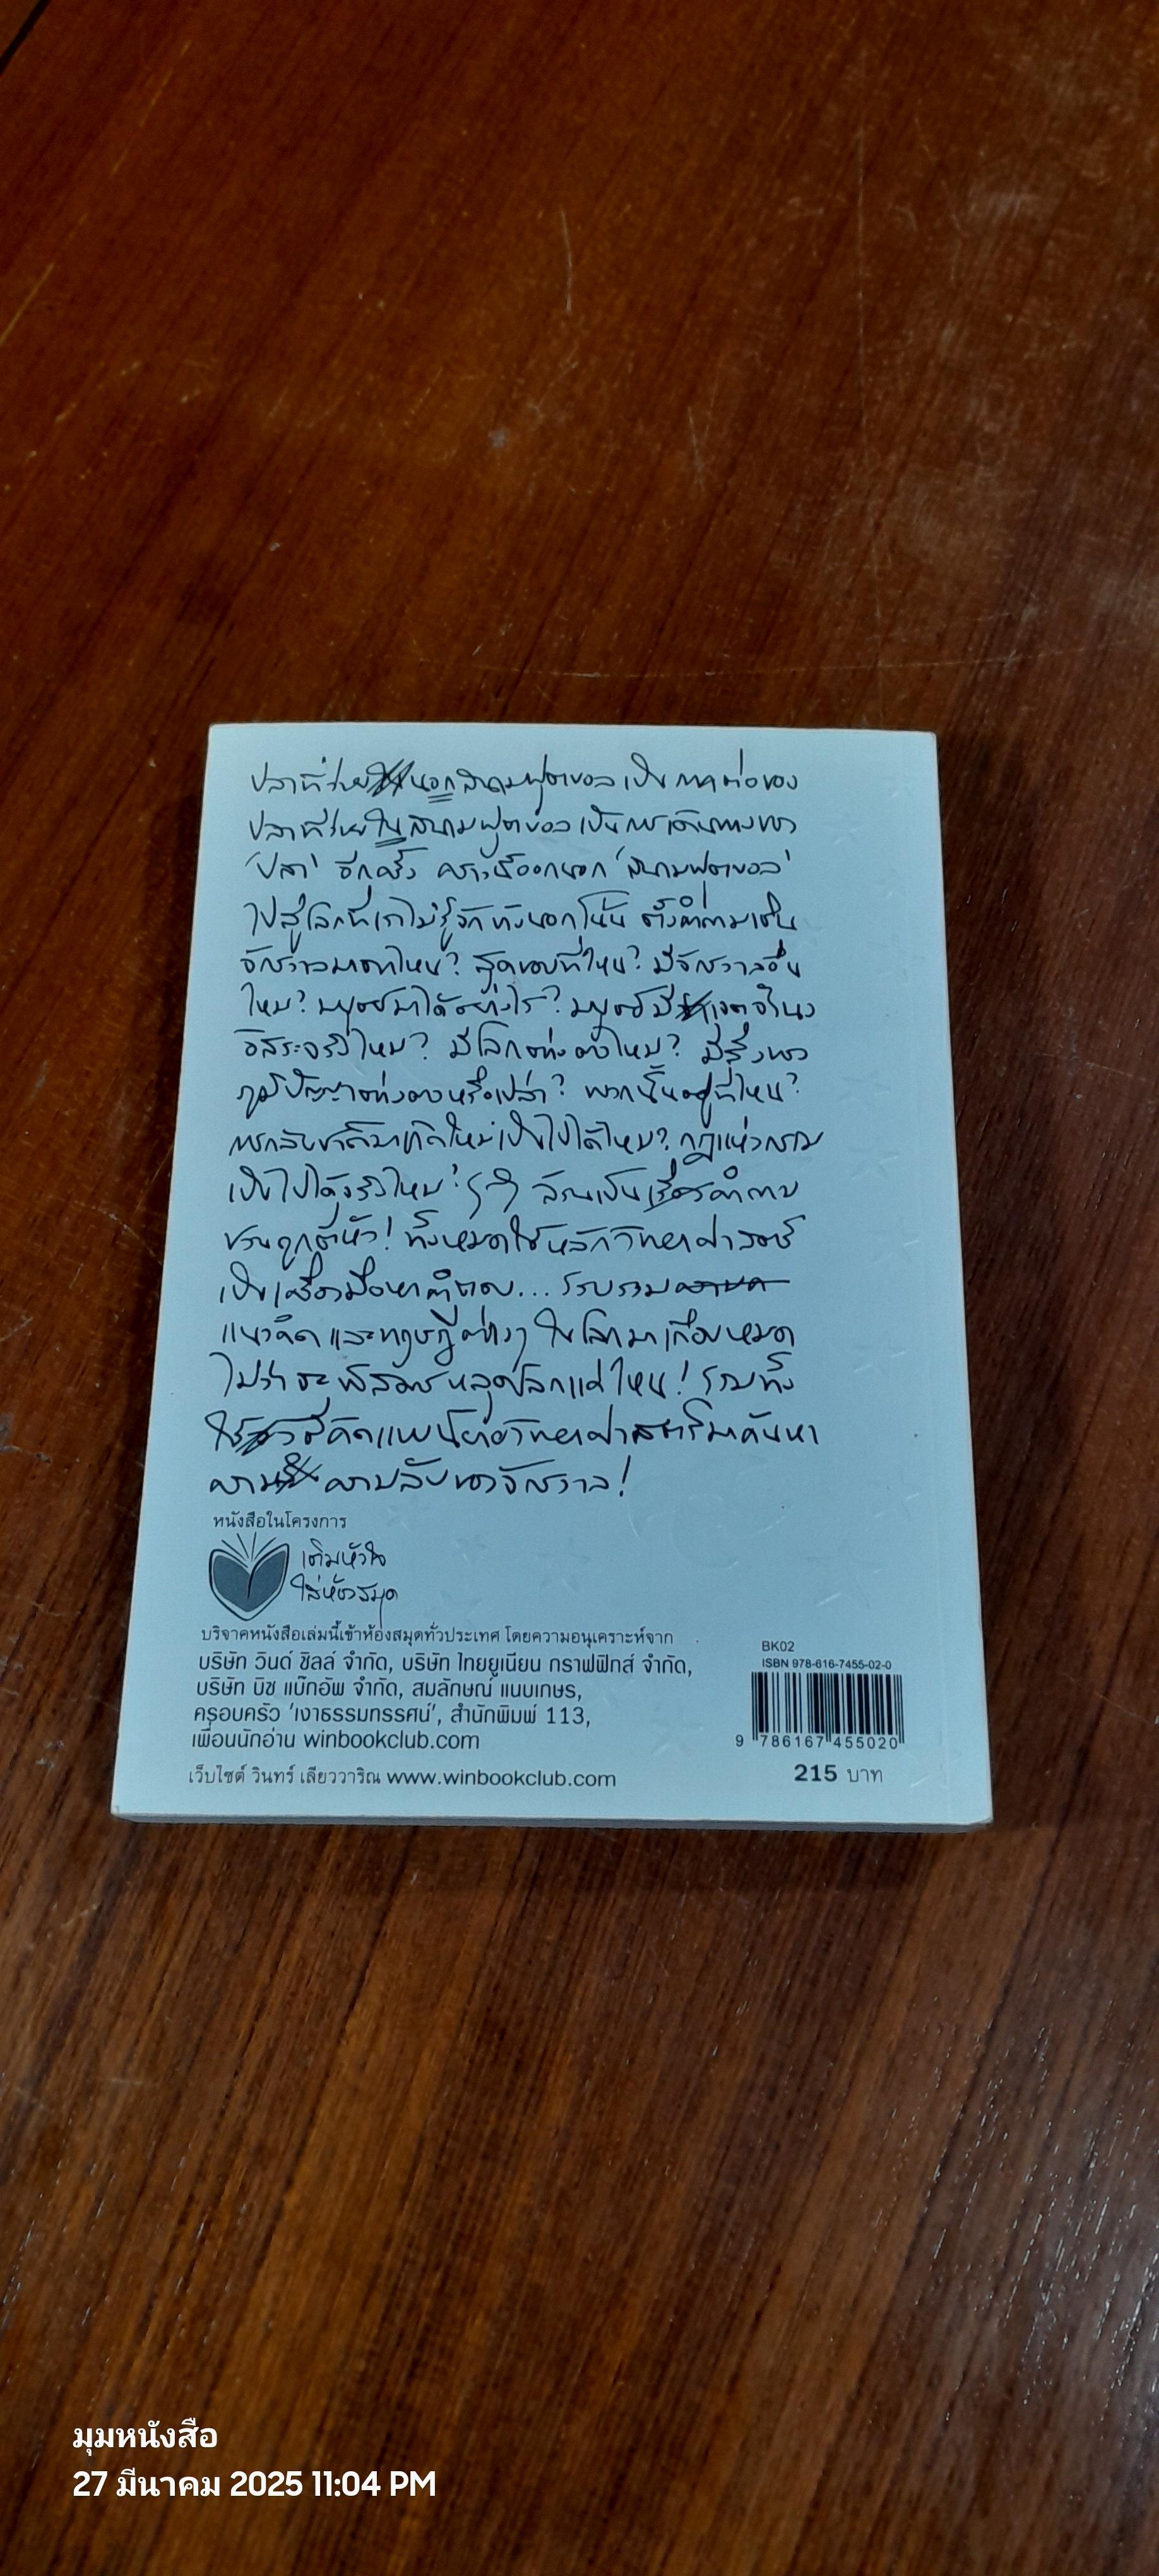 ปลาที่ว่ายนอกสนามฟุตบอล เป็นภาคต่อของ
ปลาที่ว่ายในสนามฟุตบอล เป็นการเดินทางของ
'ปลา' อีกครั้ง คราวนี้ออกนอก 'สนามฟุตบอล'
ไปสู่โลกที่เราไม่รู้จักข้างนอกโน้น ตั้งคำถามเช่น
จักรวาลมาจากไหน? สุดขอบที่ไหน? มีจักรวาลอื่น
ไหม? มนุษย์มาได้อย่างไร? มนุษย์มีเจตจำนง
อิสระจริงไหม? มีโลกต่างดาวไหม? มีสิ่งทรง
ภูมิปัญญาต่างดาวหรือเปล่า? พวกนั้นอยู่ที่ไหน?
การกลับชาติมาเกิดใหม่เป็นไปได้ไหม? กฎแห่งกรรม
เป็นไปได้จริงไหม? ล้วนเป็นคำถาม
ชวนถูกตีหัว! ทั้งหมดใช้หลักวิทยาศาสตร์
เป็นเครื่องมือหาคำตอบ... รวบรวม
แนวคิดและทฤษฎีต่างๆ ในโลกมาเกือบหมด
ไม่ว่าจะพิสดารหลุดโลกแค่ไหน! รวมทั้ง
ใช้วิธีคิดแบบนิยายวิทยาศาสตร์มาค้นหา
ความลับของจักรวาล!
หนังสือในโครงการ
เติมหัวใจ
ใส่ห้องสมุด
บริจาคหนังสือเล่มนี้เข้าห้องสมุดทั่วประเทศ โดยความอนุเคราะห์จาก
บริษัท วินด์ ชิลล์ จำกัด, บริษัท ไทยยูเนียน กราฟฟิกส์ จำกัด,
บริษัท บิช แบ๊กอัพ จำกัด, สมลักษณ์ แนบเกษร,
ครอบครัว 'เงาธรรมทรรศน์', สำนักพิมพ์ 113,
เพื่อนนักอ่าน winbookclub.com
เว็บไซต์ วินทร์ เลียววาริณ www.winbookclub.com
BK02
ISBN 978-616-7455-02-0
9 786167 455020
215 บาท
มุมหนังสือ
27 มีนาคม 2025 11:04 PM